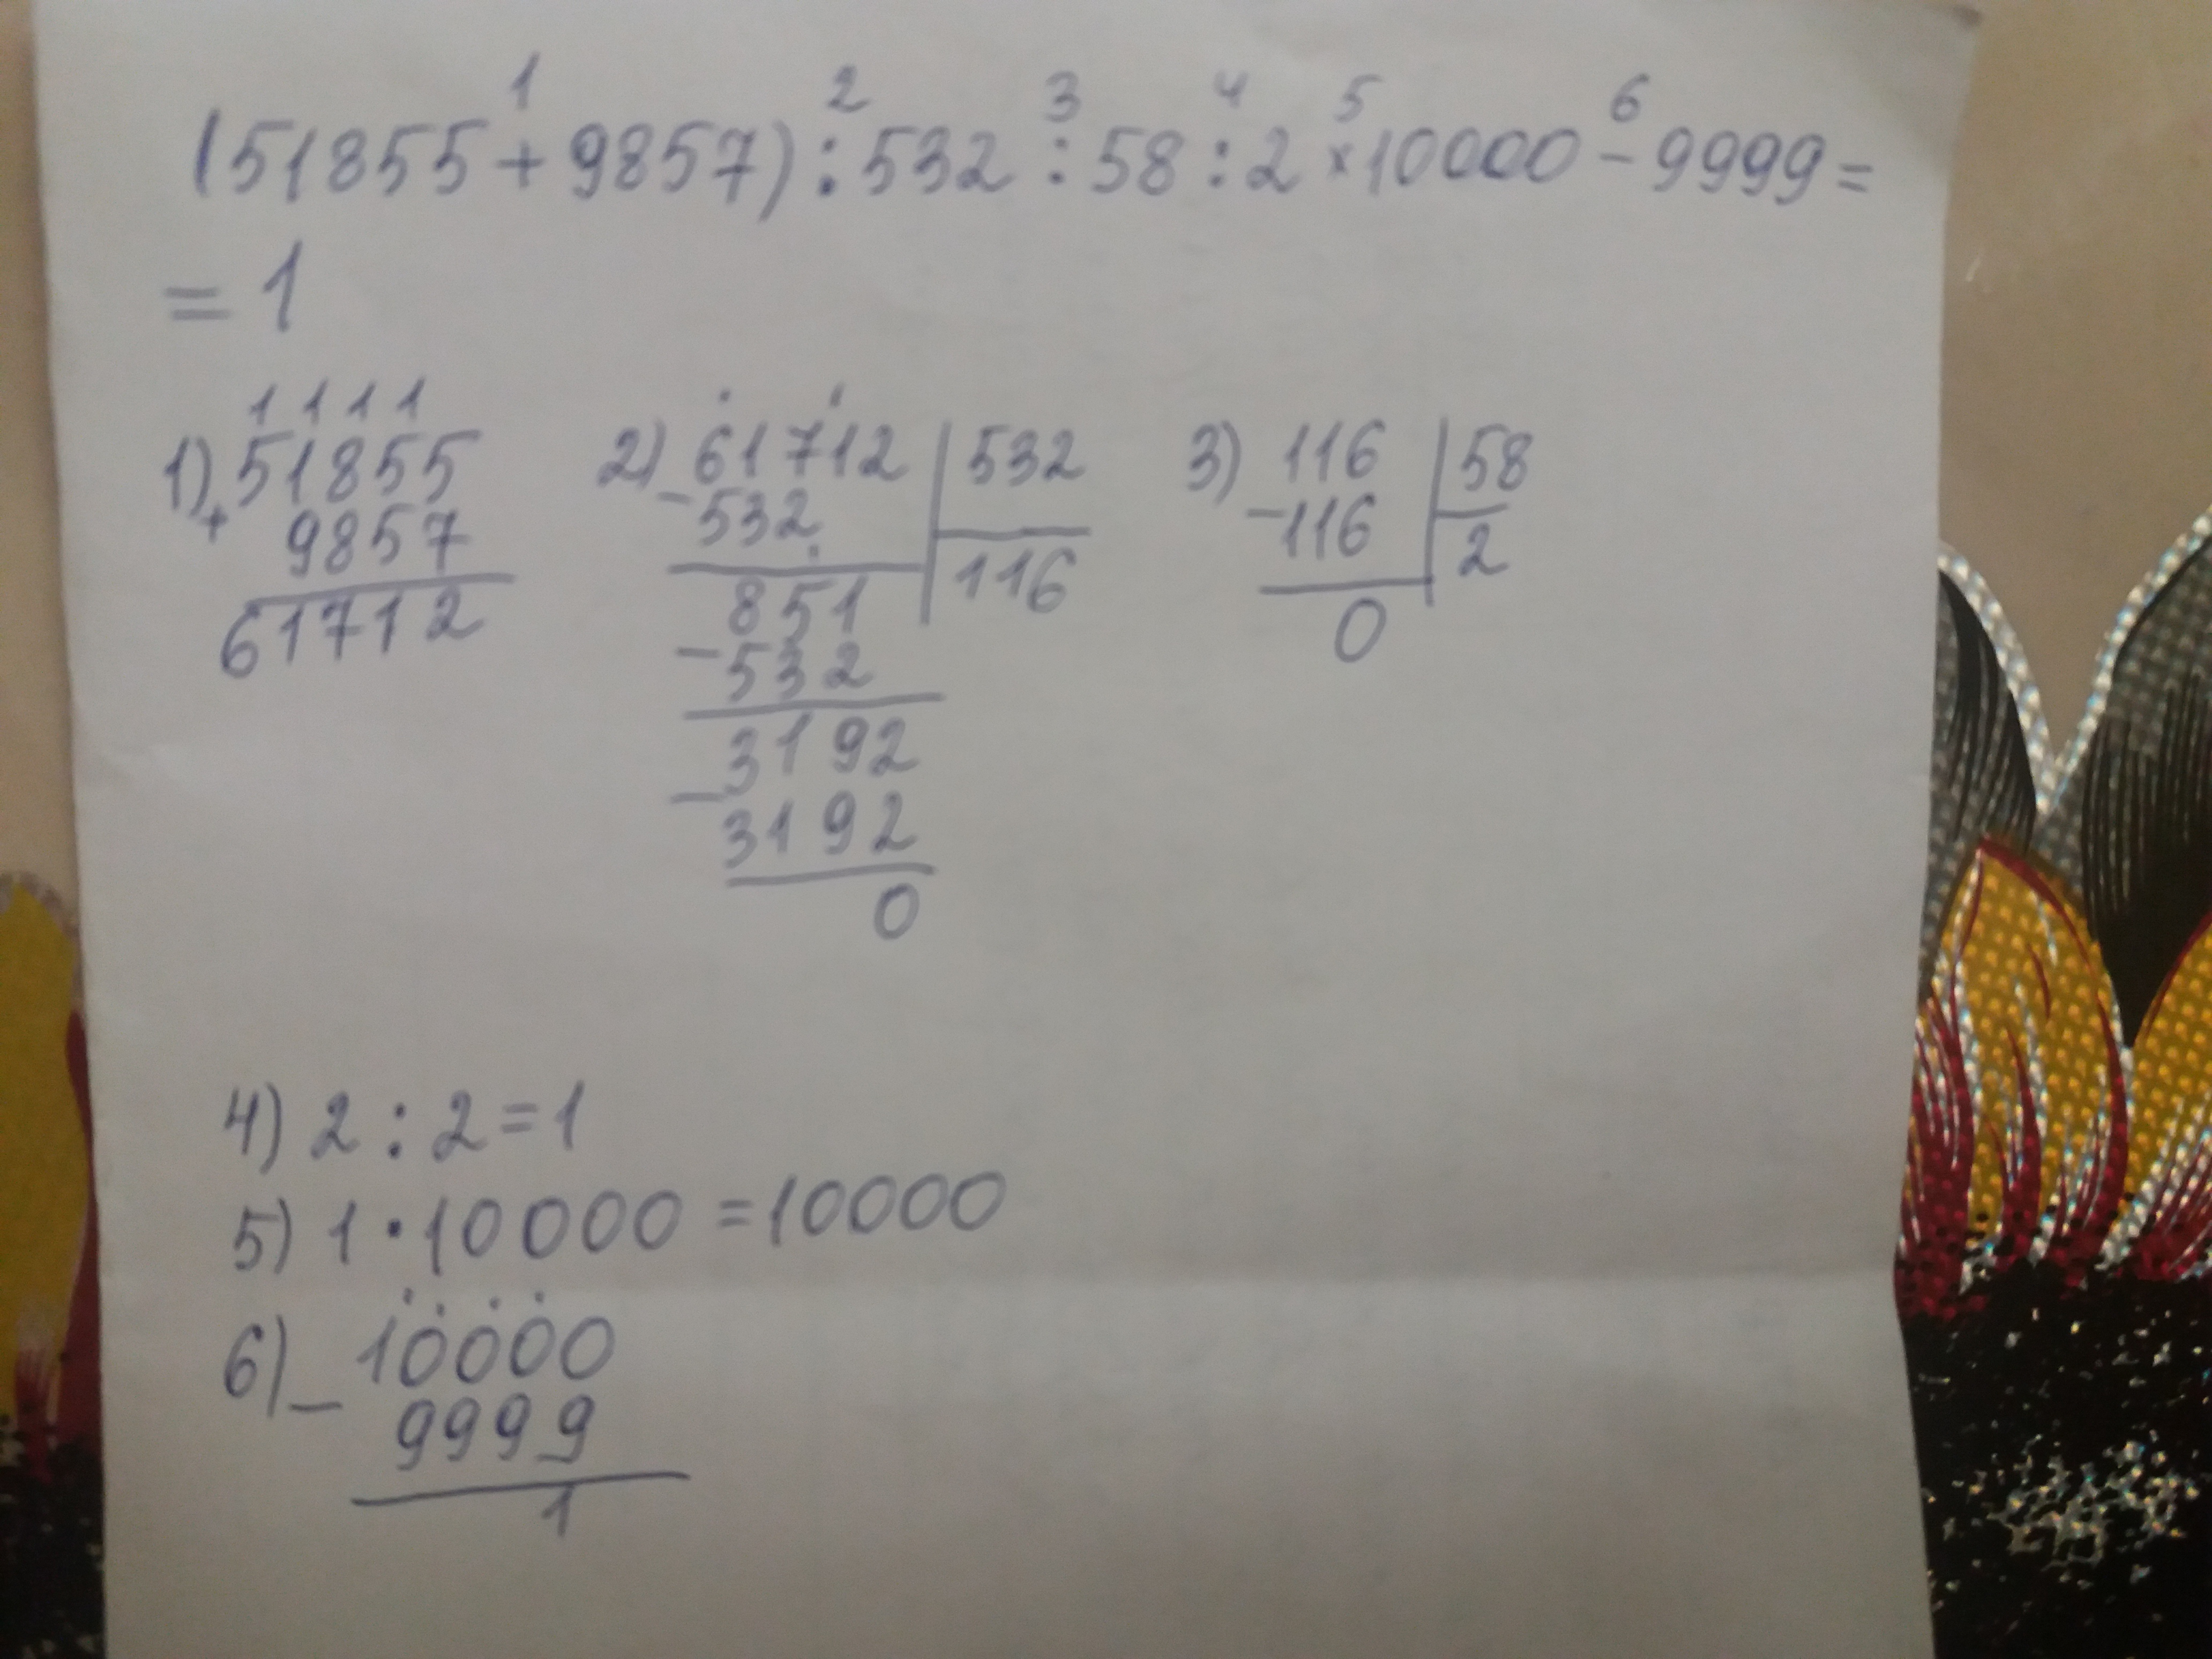 1 2 3 4 5 6
(51855+9857):532:58:2×10000-9999=
=1
1111
1) 51855
+ 9857
61712
2) 61712 | 532
-532 | 116
851
-532
3192
-3192
0
3) 116 | 58
-116 | 2
0
4) 2:2=1
5) 1·10000=10000
6) - 10000
9999
1